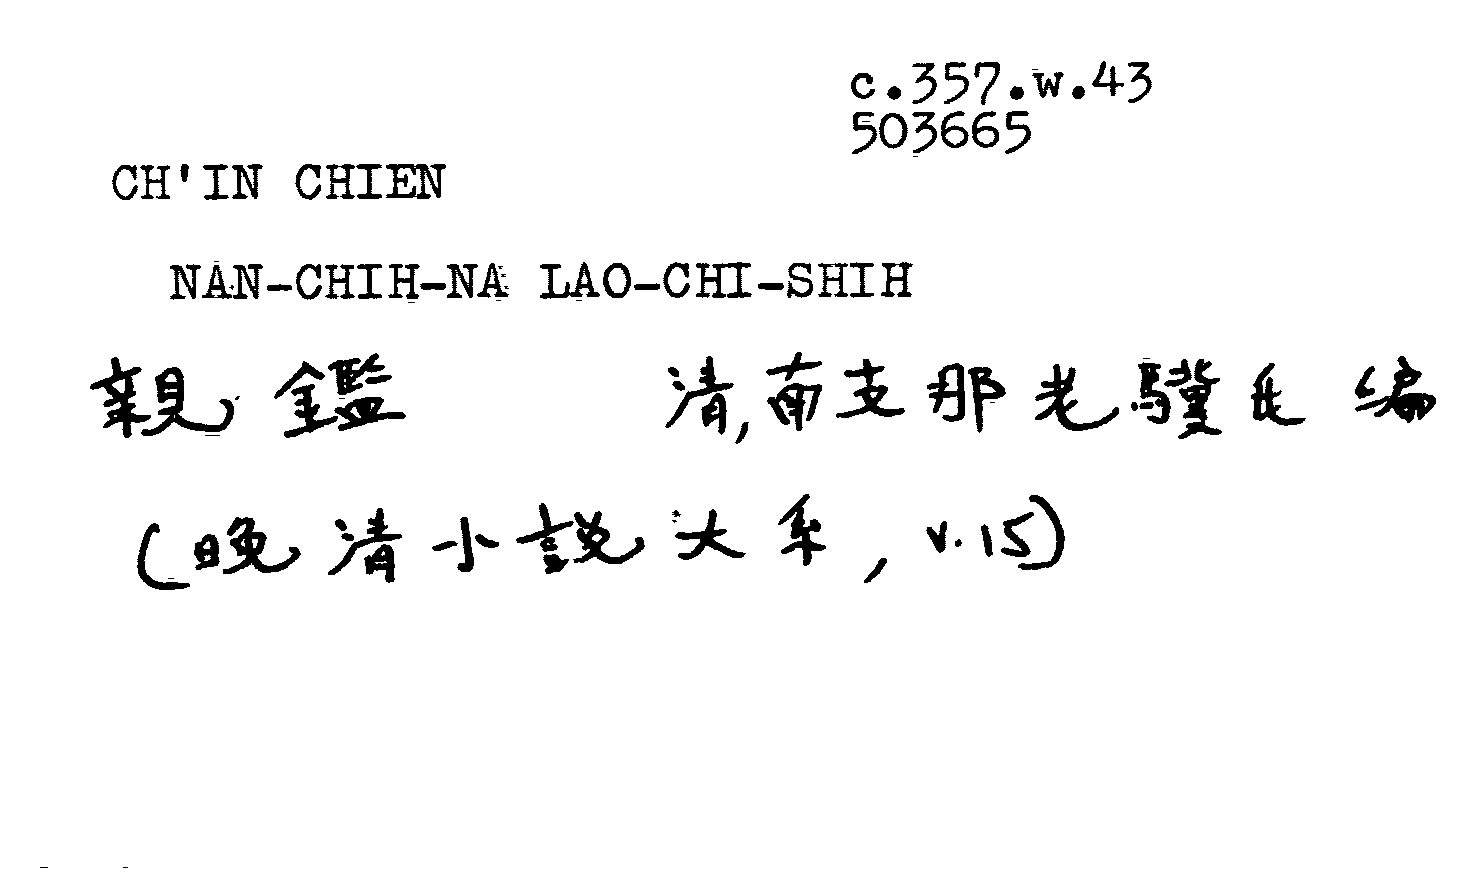 c.357.w.43
503665
CH'IN CHIEN
NAN-CHIH-NA LAO-CHI-SHIH
親鑑 清,南支那老驥氏 编
(晚清小說大系, v.15)